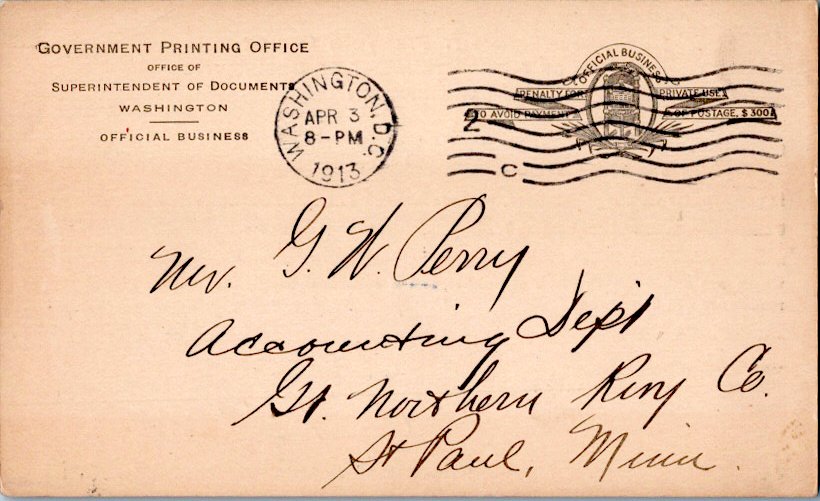 GOVERNMENT PRINTING OFFICE
OFFICE OF
SUPERINTENDENT OF DOCUMENTS
WASHINGTON
OFFICIAL BUSINESS
WASHINGTON, D.C.
APR 3
8-PM
1913
2
C
OFFICIAL BUSINESS
PENALTY FOR PRIVATE USE
TO AVOID PAYMENT OF POSTAGE, $300
Mr. G. W. Perry
Accounting Dept
Gt. Northern Rwy Co.
St Paul, Minn.